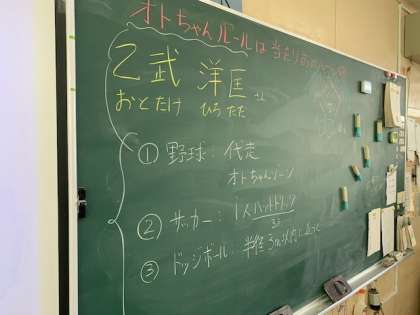 オトちゃんルールは当たり前のルール
乙武 洋匡
おとたけ ひろただ
① 野球：代走
オトちゃんゾーン
② サッカー：1人ハットトリック
③ ドッジボール：半径3m以内に